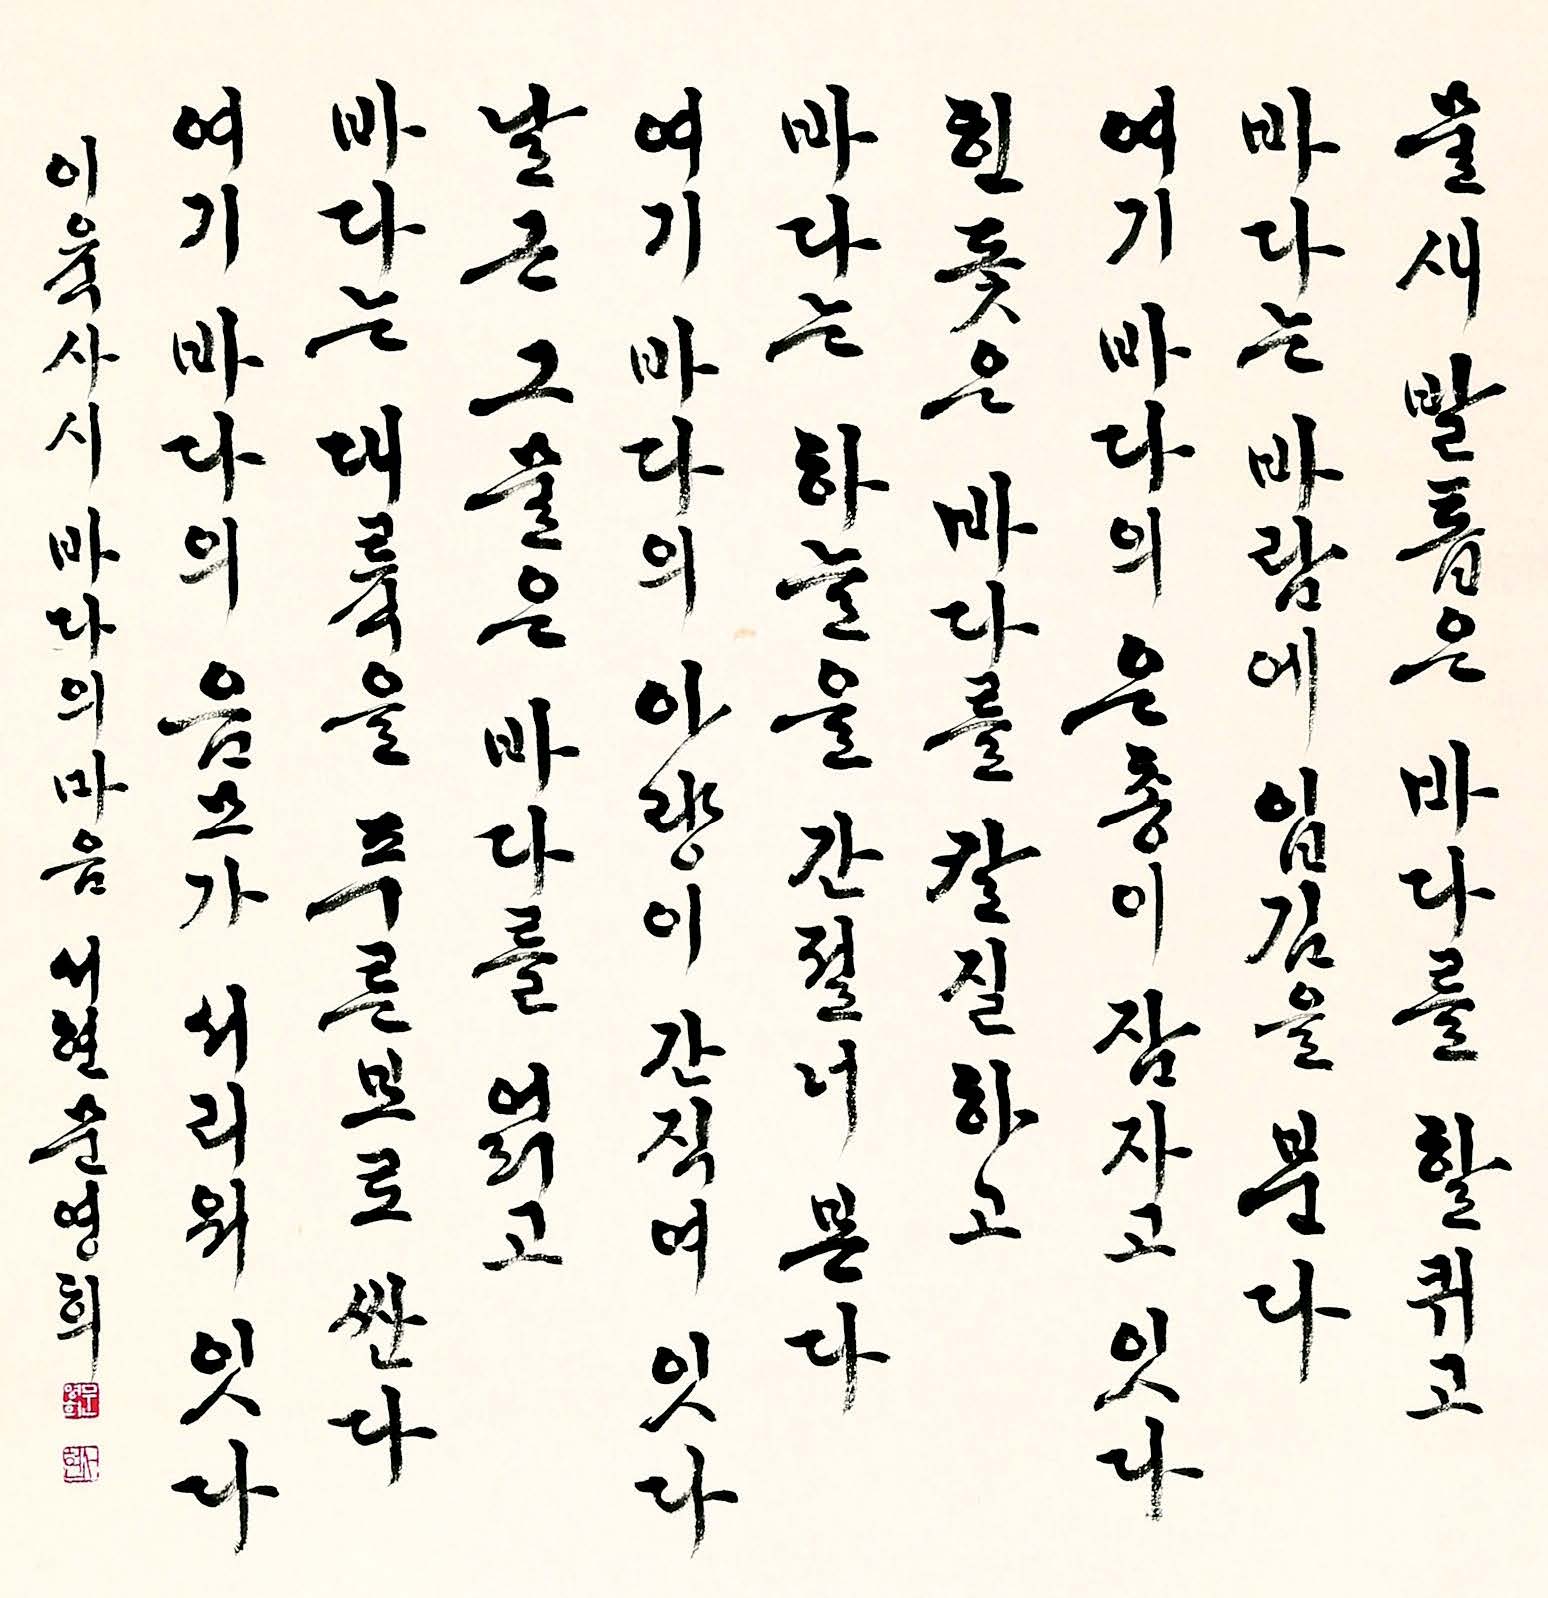 물새 발톱은 바다를 할퀴고
바다는 바람에 입김을 분다
여기 바다의 은총이 잠자고 잇다
힌 돛은 바다를 칼질하고
바다는 하늘을 간절너 본다
여기 바다의 아량이 간직여 잇다
날근 그물은 바다를 얽고
바다는 대륙을 푸른 보로 싼다
여기 바다의 음모가 서리워 잇다
이육사 시 바다의 마음 서현 문영희